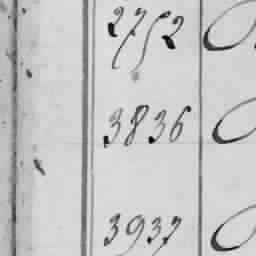 2752
3836
3937